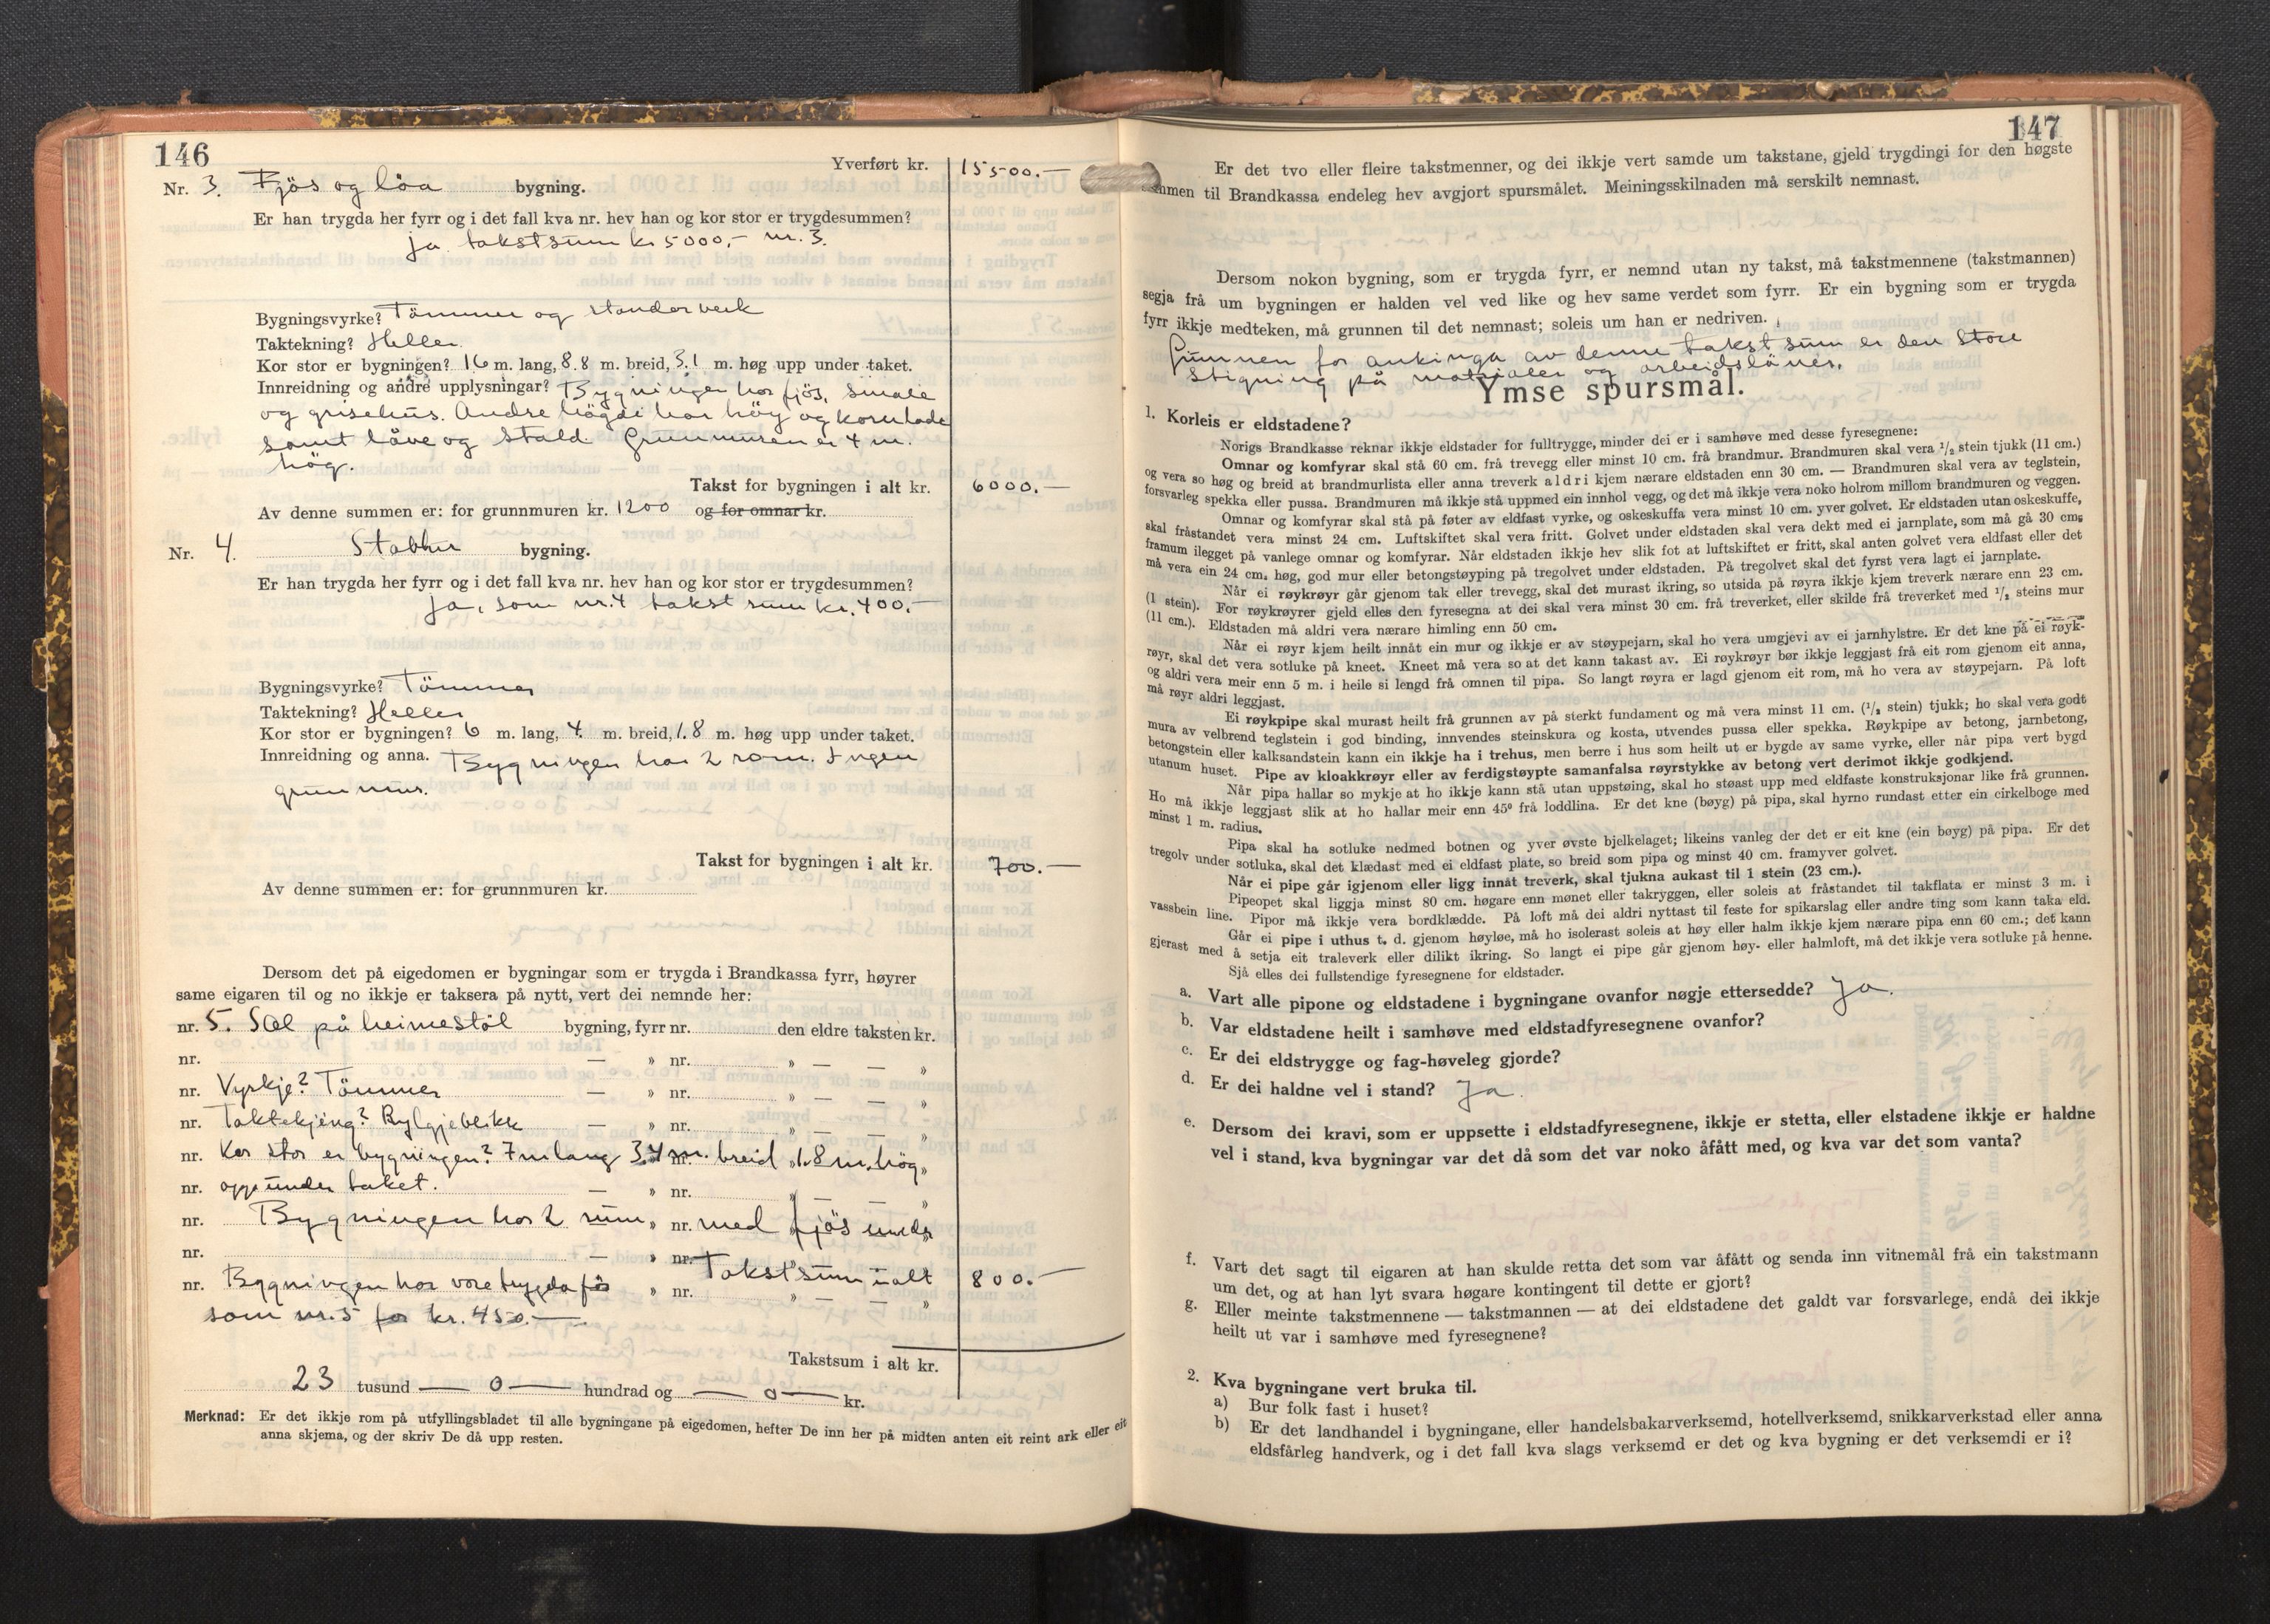 146
Yverført kr. 15500.—
Nr. 3. Fjös og löa bygning.
Er han trygda her fyrr og i det fall kva nr. hev han og kor stor er trygdesummen?
ja takstsum kr 5000,- nr. 3.
Bygningsvyrke? Tömmer og standerverk
Taktekning? Heller.
Kor stor er bygningen? 16 m. lang, 8.8 m. breid, 3.1 m. høg upp under taket.
Innreidning og andre upplysningar? Bygningen har fjös, smale
og grisehus. Andre högdi har höy og kornlade
samt låve og stald. Grunnmuren er 4 m.
hög.
Takst for bygningen i alt kr. 6000.—
Av denne summen er: for grunnmuren kr. 1200 og for omnar kr.
Nr. 4. Stabbur bygning.
Er han trygda her fyrr og i det fall kva nr. hev han og kor stor er trygdesummen?
ja, som nr. 4 takst sum kr. 400.—
Bygningsvyrke? Tömmer
Taktekning? Heller
Kor stor er bygningen? 6 m. lang, 4. m. breid, 1.8 m. høg upp under taket.
Innreidning og anna. Bygningen har 2 rom. Ingen
grunnmur.
Takst for bygningen i alt kr. 700.—
Av denne summen er: for grunnmuren kr.
Dersom det på eigedomen er bygningar som er trygda i Brandkassa fyrr, høyrer
same eigaren til og no ikkje er taksera på nytt, vert dei nemnde her:
nr. 5. Sæl på heimestöl bygning, fyrr nr. den eldre taksten kr.
nr. — » nr. » — — »
nr. Vyrkje? Tömmer — » nr. » — — »
nr. Taktekjing? Bylgjeblikk — » nr. » — — »
nr. Kor stor er bygningen? 7 m lang 3.4 m. breid 1.8 m. hög
nr. opp under taket. — » nr. » — — »
nr. Bygningen har 2 rum » nr. med fjös under
nr. — » nr. Takstsum i alt 800.—
nr. Bygningen har vore trygda før » nr. » — — »
som nr. 5 for kr. 450.—
Takstsum i alt kr.
23 tusund — 0 — hundrad og — 0 — kr.
Merknad: Er det ikkje rom på utfyllingsbladet til alle bygningane på eigedomen, hefter De inn her på midten anten eit reint ark eller eit
anna skjema, og der skriv De då upp resten.
147
Er det tvo eller fleire takstmenner, og dei ikkje vert samde um takstane, gjeld trygdingi for den høgste
summen til Brandkassa endeleg hev avgjort spursmålet. Meiningsskilnaden må serskilt nemnast.
Dersom nokon bygning, som er trygda fyrr, er nemnd utan ny takst, må takstmennene (takstmannen)
segja frå um bygningen er halden vel ved like og hev same verdet som fyrr. Er ein bygning som er trygda
fyrr ikkje medteken, må grunnen til det nemnast; soleis um han er nedriven.
Grunnen for aukinga av denne takst sum er den store
stigning på materialer og arbeidslöner.
Ymse spursmål.
1. Korleis er eldstadene?
Norigs Brandkasse reknar ikkje eldstader for fulltrygge, minder dei er i samhøve med desse fyresegnene:
Omnar og komfyrar skal stå 60 cm. frå trevegg eller minst 10 cm. frå brandmur. Brandmuren skal vera ½ stein tjukk (11 cm.)
og vera so høg og breid at brandmurlista eller anna treverk aldri kjem nærare eldstaden enn 30 cm. — Brandmuren skal vera av teglstein,
forsvarleg spekka eller pussa. Brandmuren må ikkje stå uppmed ein innhol vegg, og det må ikkje vera noko holrom millom brandmuren og veggen.
Omnar og komfyrar skal stå på føter av eldfast vyrke, og oskeskuffa vera minst 10 cm. yver golvet. Er eldstaden utan oskeskuffe,
skal fråstandet vera minst 24 cm. Luftskiftet skal vera fritt. Golvet under eldstaden skal vera dekt med ei jarnplate, som må gå 30 cm.
framum ilegget på vanlege omnar og komfyrar. Når eldstaden ikkje hev slik fot at luftskiftet er fritt, skal anten golvet vera eldfast eller det
må vera ein 24 cm. høg, god mur eller betongstøyping på tregolvet under eldstaden. På tregolvet skal det fyrst vera lagt ei jarnplate.
Når ei røykrøyr går gjenom tak eller trevegg, skal det murast ikring, so utsida på røyra ikkje kjem treverk nærare enn 23 cm.
(1 stein). For røykrøyrer gjeld elles den fyresegna at dei skal vera minst 30 cm. frå treverket, eller skilde frå treverket med ½ steins mur
(11 cm.). Eldstaden må aldri vera nærare himling enn 50 cm.
Når ei røyr kjem heilt innåt ein mur og ikkje er av støypejarn, skal ho vera umgjevi av ei jarnhylstre. Er det kne på ei røyk-
røyr, skal det vera sotluke på kneet. Kneet må vera so at det kann takast av. Ei røykrøyr bør ikkje leggjast frå eit rom gjenom eit anna,
og aldri vera meir enn 5 m. i heile si lengd frå omnen til pipa. So langt røyra er lagd gjenom eit rom, må ho vera av støypejarn. På loft
må røyr aldri leggjast.
Ei røykpipe skal murast heilt frå grunnen av på sterkt fundament og må vera minst 11 cm. (½ stein) tjukk; ho skal vera godt
mura av velbrend teglstein i god binding, innvendes steinskura og kosta, utvendes pussa eller spekka. Røykpipe av betong, jarnbetong,
betongstein eller kalksandstein kann ein ikkje ha i trehus, men berre i hus som heilt ut er bygde av same vyrke, eller når pipa vert bygd
utanum huset. Pipe av kloakkrøyr eller av ferdigstøypte samanfalsa røyrstykke av betong vert derimot ikkje godkjend.
Når pipa hallar so mykje at ho ikkje kann stå utan uppstøing, skal ho støast upp med eldfaste konstruksjonar like frå grunnen.
Ho må ikkje leggjast slik at ho hallar meir enn 45° frå loddlina. Er det kne (bøyg) på pipa, skal hyrno rundast etter ein cirkelboge med
minst 1 m. radius.
Pipa skal ha sotluke nedmed botnen og yver øvste bjelkelaget; likeins vanleg der det er eit kne (ein bøyg) på pipa. Er det
tregolv under sotluka, skal det klædast med ei eldfast plate, so breid som pipa og minst 40 cm. framyver golvet.
Når ei pipe går igjenom eller ligg innåt treverk, skal tjukna aukast til 1 stein (23 cm.).
Pipeopet skal liggja minst 80 cm. høgare enn mønet eller takryggen, eller soleis at fråstandet til takflata er minst 3 m. i
vassbein line. Pipor må ikkje vera bordklædde. På loft må dei aldri nyttast til feste for spikarslag eller andre ting som kann taka eld.
Går ei pipe i uthus t. d. gjenom høyløe, må ho isolerast soleis at høy eller halm ikkje kjem nærare pipa enn 60 cm.; det kann
gjerast med å setja eit traleverk eller dilikt ikring. So langt ei pipe går gjenom høy- eller halmloft, må det ikkje vera sotluke på henne.
Sjå elles dei fullstendige fyresegnene for eldstader.
a. Vart alle pipone og eldstadene i bygningane ovanfor nøgje ettersedde? Ja.
b. Var eldstadene heilt i samhøve med eldstadfyresegnene ovanfor?
c. Er dei eldstrygge og fag-høveleg gjorde?
d. Er dei haldne vel i stand? Ja.
e. Dersom dei kravi, som er uppsette i eldstadfyresegnene, ikkje er stetta, eller elstadene ikkje er haldne
vel i stand, kva bygningar var det då som det var noko åfått med, og kva var det som vanta?
f. Vart det sagt til eigaren at han skulde retta det som var åfått og senda inn vitnemål frå ein takstmann
um det, og at han lyt svara høgare kontingent til dette er gjort?
g. Eller meinte takstmennene — takstmannen — at dei eldstadene det galdt var forsvarlege, endå dei ikkje
heilt ut var i samhøve med fyresegnene?
2. Kva bygningane vert bruka til.
a) Bur folk fast i huset?
b) Er det landhandel i bygningane, eller handelsbakarverksemd, hotellverksemd, snikkarverkstad eller anna
eldsfårleg handverk, og i det fall kva slags verksemd er det og kva bygning er det verksemdi er i?